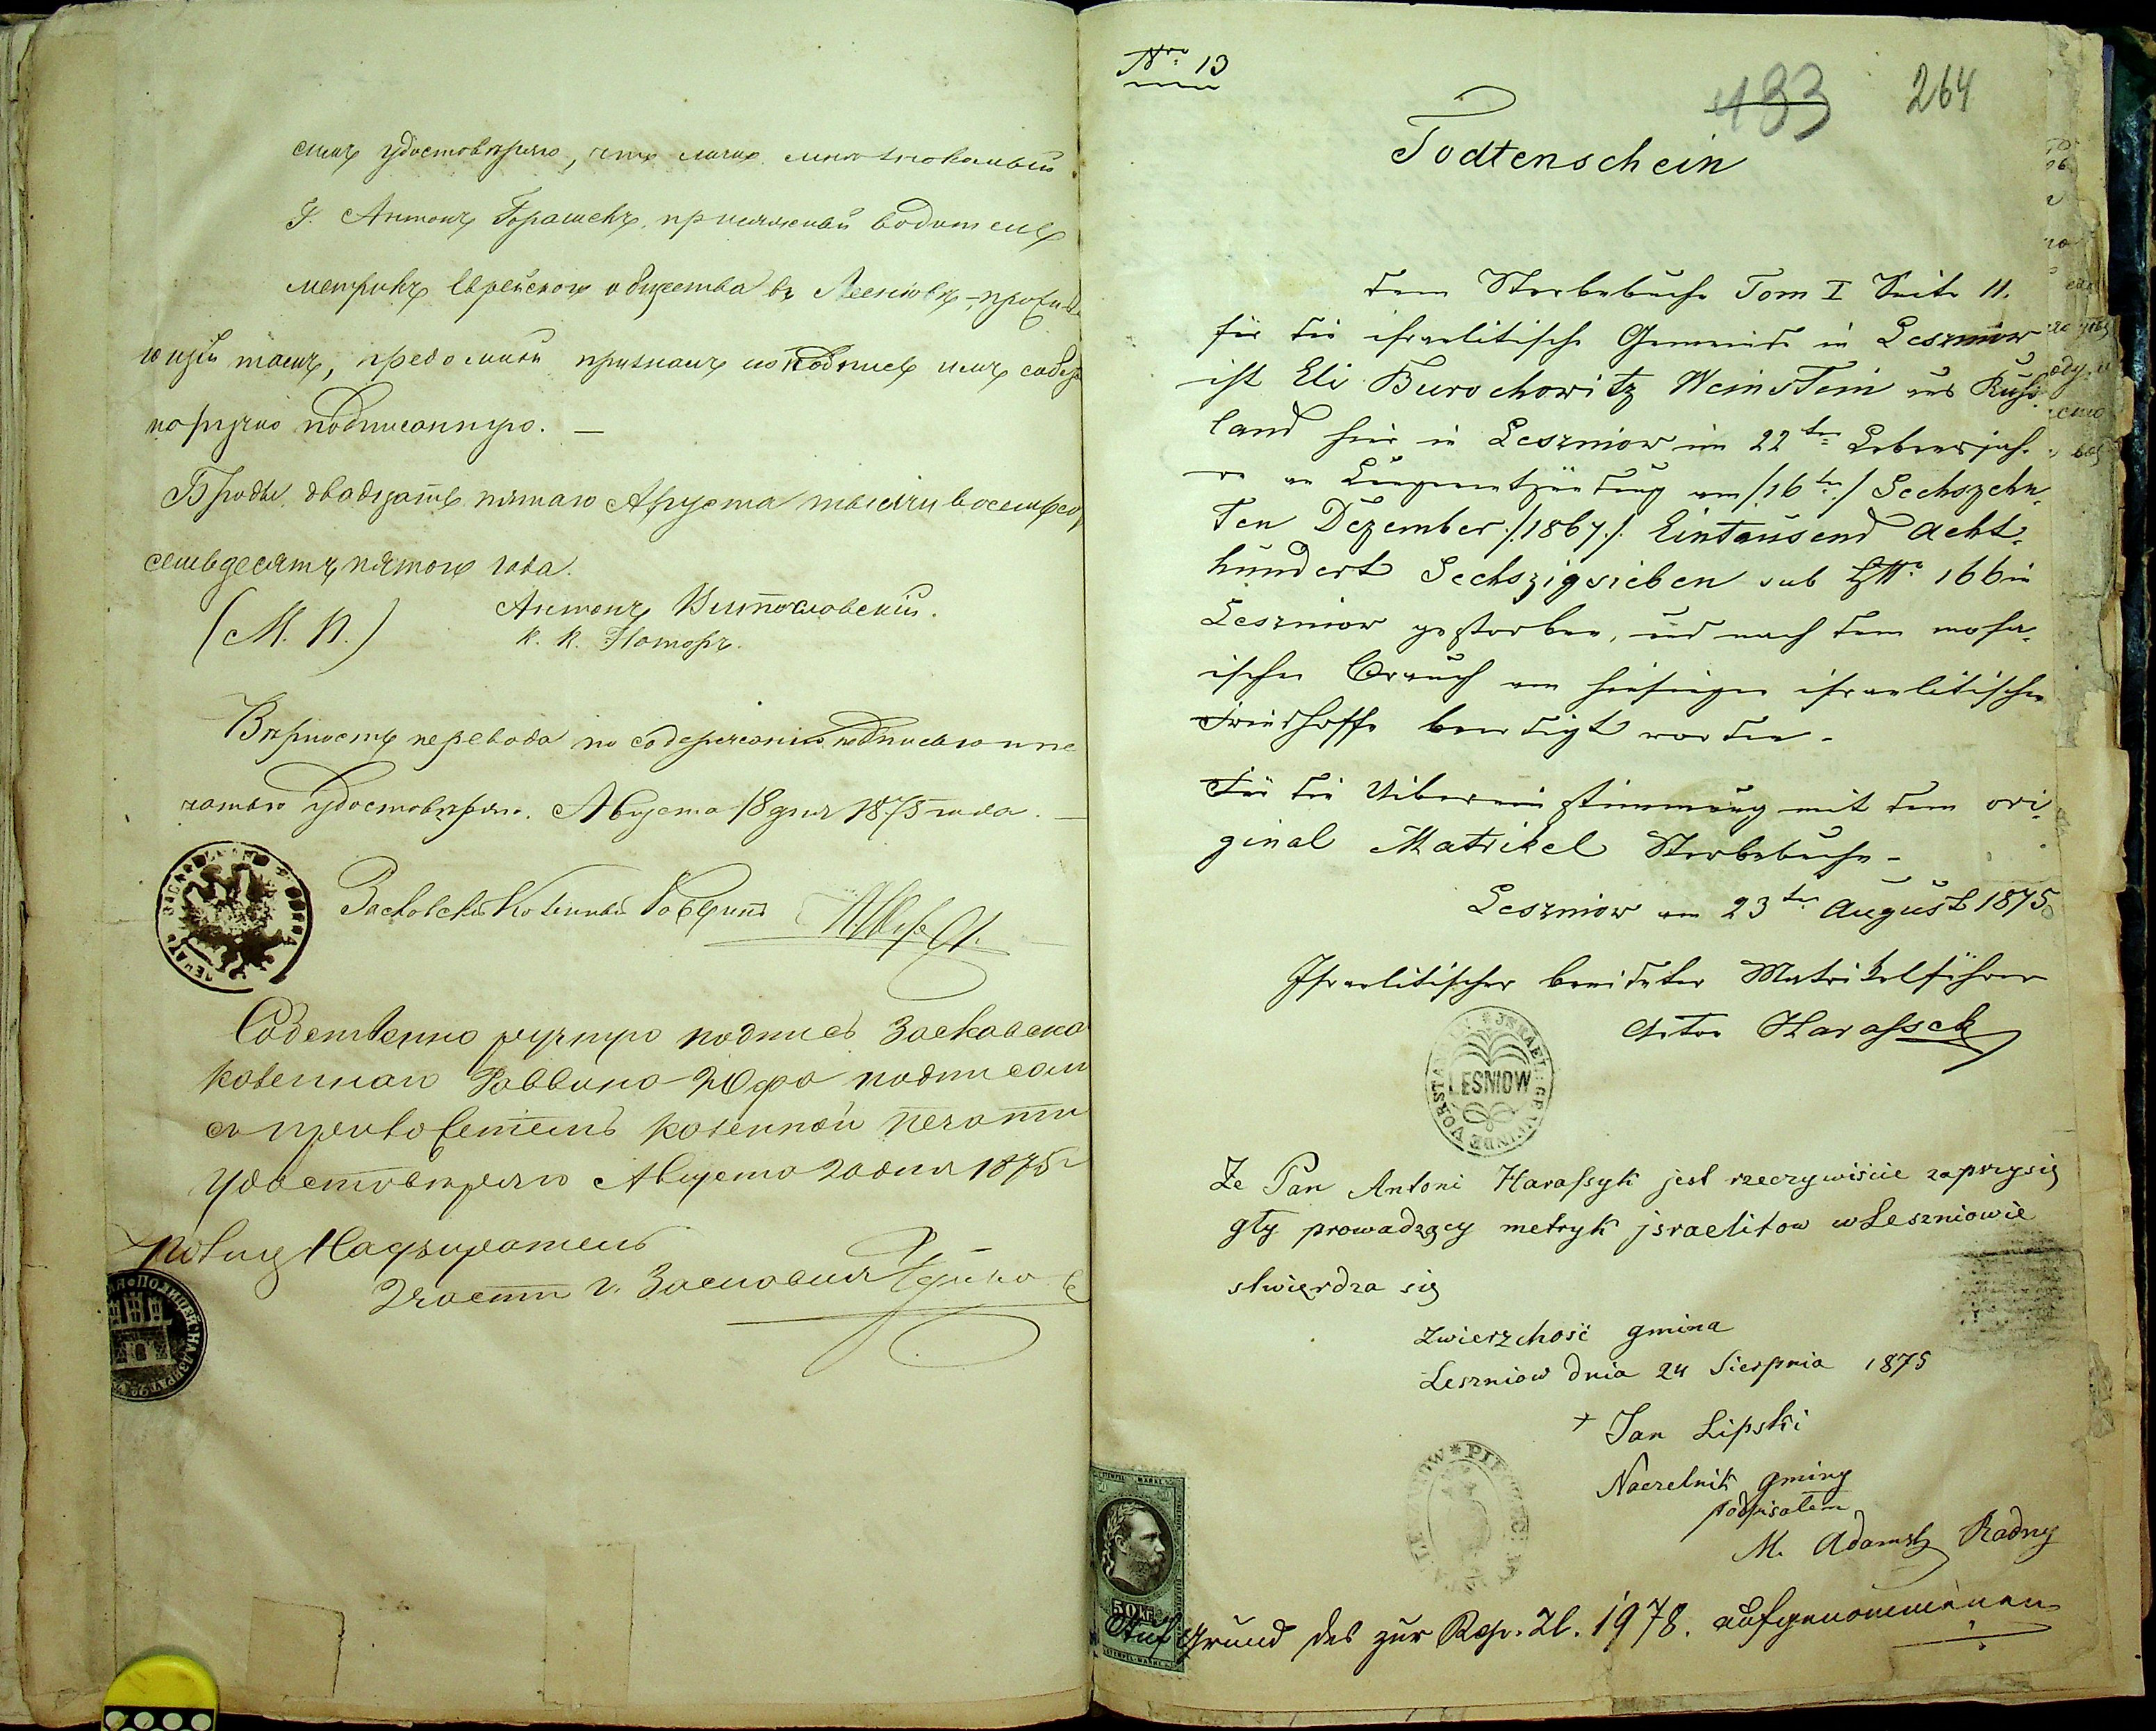 симъ удостовѣряю, что лично мнѣ знакомый
Г. Антонъ Горашекъ, присяжный водитель
метрикъ Еврейскаго общества въ Лешнювѣ, прожива
ющій тамъ, предо мной призналъ подпись имъ собст
норучно подписанную. —
Броды, двадцать пятаго Августа тысячи восемьсотъ
семьдесятъ пятого года.
(М. П.)
Антонъ
К. К. Нотарь.
Вѣрность перевода по содержанію подписью и пе
чатью удостовѣряю. Августа 18 дня 1875 года. —
Заславскій Казенный Раввинъ
Собственно ручную подпись Заславска
казеннаго Раввина подписом
съ приложеніемъ казенной печати
удостовѣряю Августа 20 дня 1875 г
Надзиратель
2 части г. Заславля
Nro 13
433
264
Todtenschein
dem Sterbebuche Tom I Seite 11.
für die israelitische Gemeinde in Leszniow
ist Eli Burochowitz Weinstein aus Ruß-
land hier in Leszniow im 22ten Lebensjah-
re an Lungenentzündung am /16ten/ Sechszehn-
ten Dezember /1867/. Eintausend Acht-
hundert Sechszigsieben sub HNo 166 in
Leszniow gestorben, und nach dem mosa-
ischen Brauch am hiesigen israelitischen
Friedhoffe beerdigt worden.
Für die Uibereinstimmung mit dem ori-
ginal Matrikel Sterbebuche –
Leszniow am 23ten August 1875
Israelitischer beeideter Matrikelführer
Anton Harassek
ISRAEL. GEMEINDE VORSTAND
LESNIOW
Że Pan Antoni Harassyk jest rzeczywiście zaprzysię
gły prowadzący metryk israelitow w Leszniowie
stwierdza się
Zwierzchość gmina
Leszniow dnia 24 Sierpnia 1875
+ Jan Lipski
Naczelnik gminy
podpisałem
M. Adamski Radny
50 Kr.
Auf Grund des zur Rep. Zl. 1978. aufgenommenen